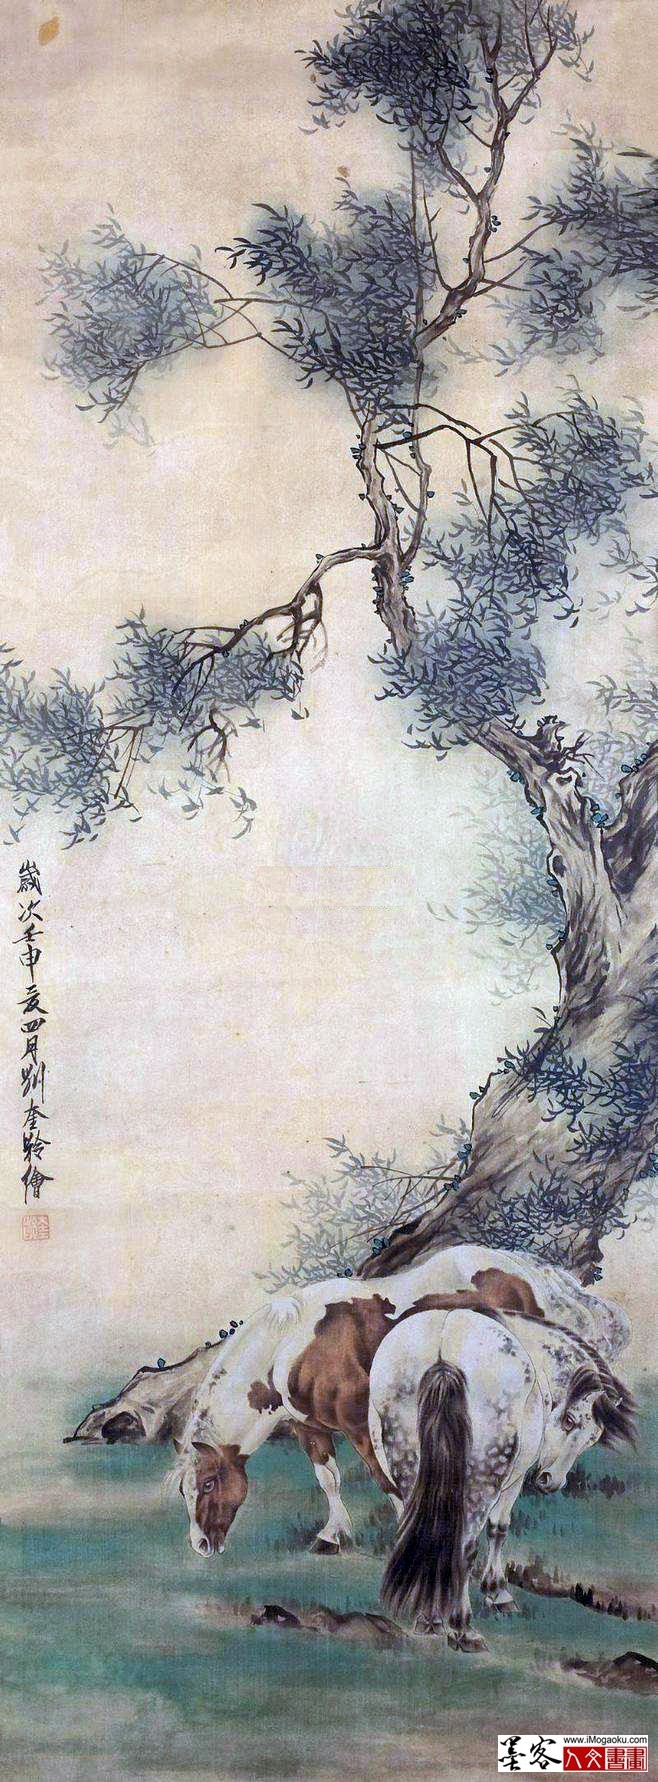 歲次壬申夏四月劉奎齡繪
墨客
www.iMogaoku.com
人文書畫